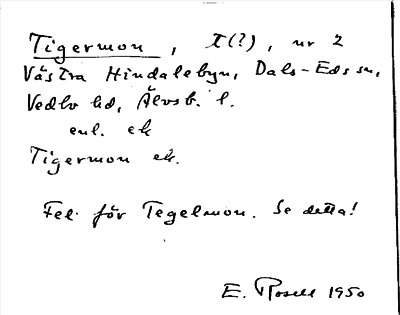 Tigermon, t(?), nr 2
Västra Hindalebyn, Dals-Eds sn,
Vedbo hd, Älvsb. l.
enl. ek
Tigermon ek.
Fel för Tegelmon. Se detta!
E. Rosell 1950